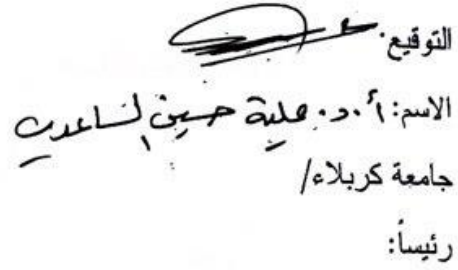 التوقيع:
الاسم: أ.د. علية حسين الساعدي
جامعة كربلاء/
رئيساً: